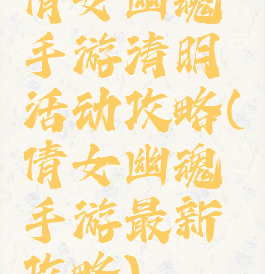 倩女幽魂
手游清明
活动攻略(
倩女幽魂
手游最新
攻略)